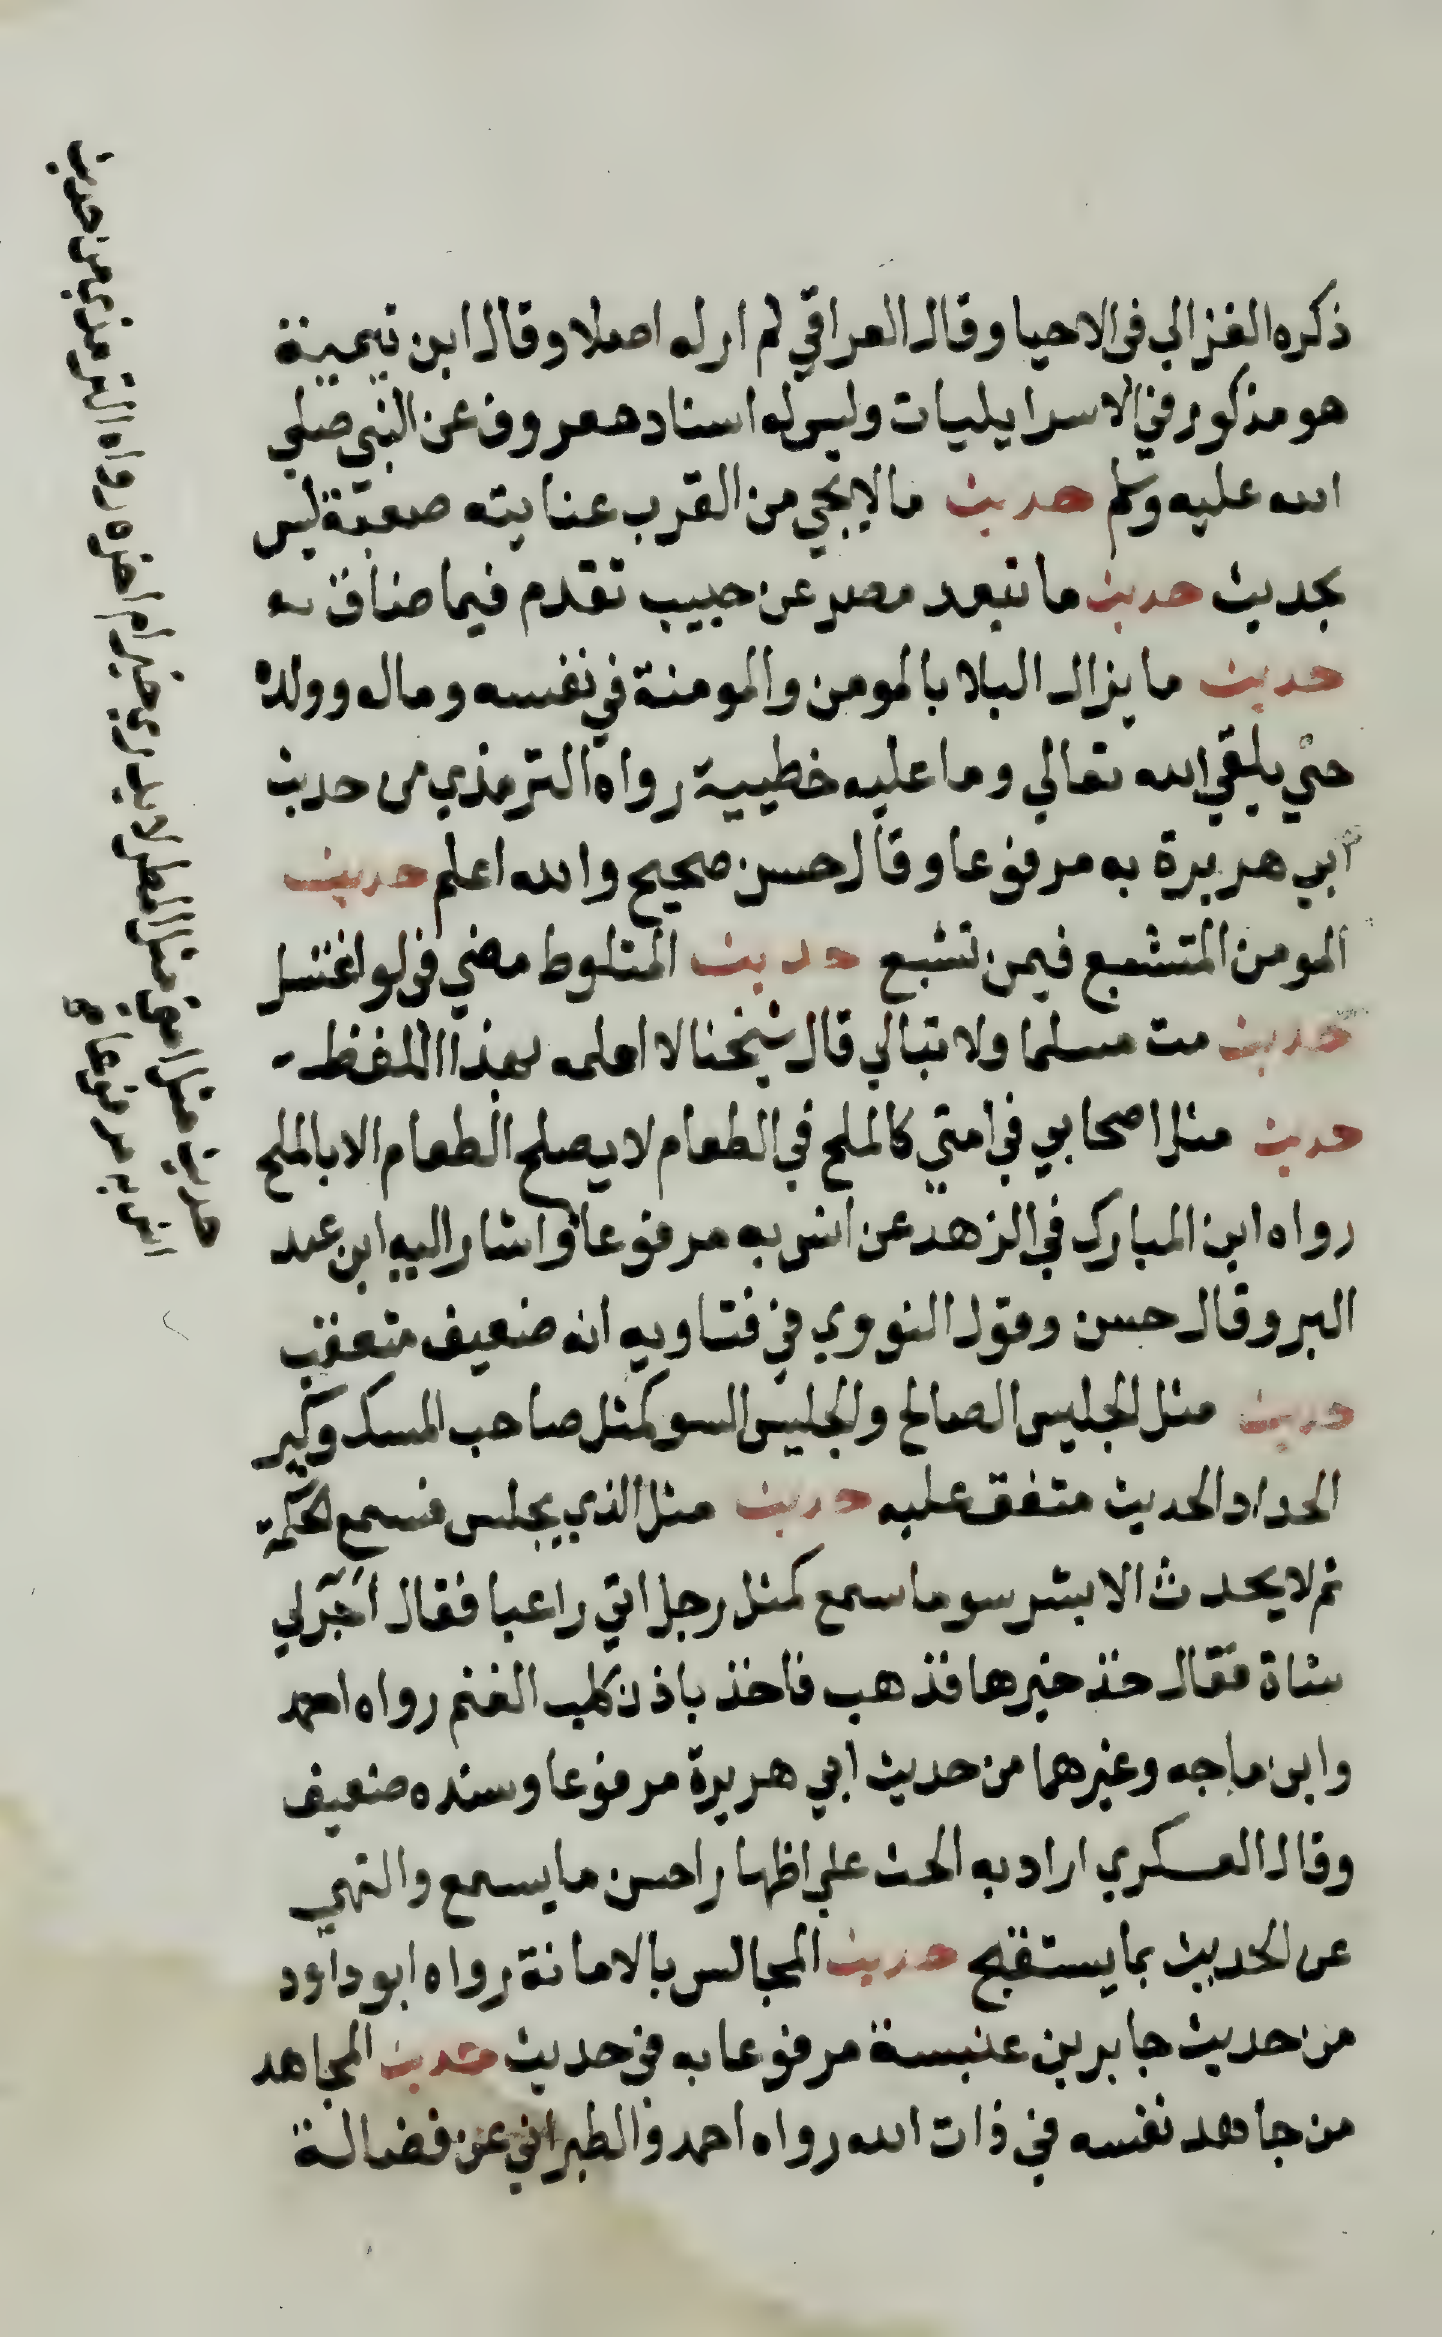 ذكره الغزالي في الاحيا وقال العراقي لم ار له اصلا وقال ابن تيمية
هو مذكور في الاسرايليات وليس له اسناد معروف عن النبي صلي
الله عليه وسلم حديث مالا يجي من القرب عنايته صعبة ليس
بحديث حديث ما تبعد مصر عن حبيب تقدم فيما ضاق
حديث ما يزال البلا بالمومن والمومنة في نفسه وماله وولده
حتي يلقي الله تعالي وما عليه خطيية رواه الترمذي من حديث
ابي هريرة به مرفوعا وقال حسن صحيح والله اعلم حديث
المومن المتشبع فيمن تشبع حديث المتلوط مضي في لو اغتسل
حديث مت مسلما ولا تبالي قال شيخنا لا اعلمه بهذا اللفظ
حديث مثل اصحابي في امتي كالملح في الطعام لا يصلح الطعام الا بالملح
رواه ابن المبارك في الزهد عن انس به مرفوعا واشار اليه ابن عبد
البر وقال حسن وقول النووي في فتاويه انه ضعيف متعقب
حديث مثل الجليس الصالح والجليس السو كمثل صاحب المسك وكير
الحداد الحديث متفق عليه حديث مثل الذي يجلس فسمع الحكمة
ثم لا يحدث الا بشر سو ما سمع كمثل رجل اتي راعيا فقال اجزر لي
شاة فقال خذ خيرها فذهب فاخذ باذن كلب الغنم رواه احمد
وابن ماجه وغيرهما من حديث ابي هريرة مرفوعا وسنده ضعيف
وقال العسكري اراد به الحث علي اظهار احسن ما يسمع والنهي
عن الحديث بما يستقبح حديث المجالس بالامانة رواه ابو داود
من حديث جابر بن عنبسة مرفوعا به في حديث حديث المجاهد
من جاهد نفسه في ذات الله رواه احمد والطبراني عن فضالة
حديث مثل امتي مثل المطر لا يدري خير ام اخره رواه الترمذي من حديث
انس به مرفوعا